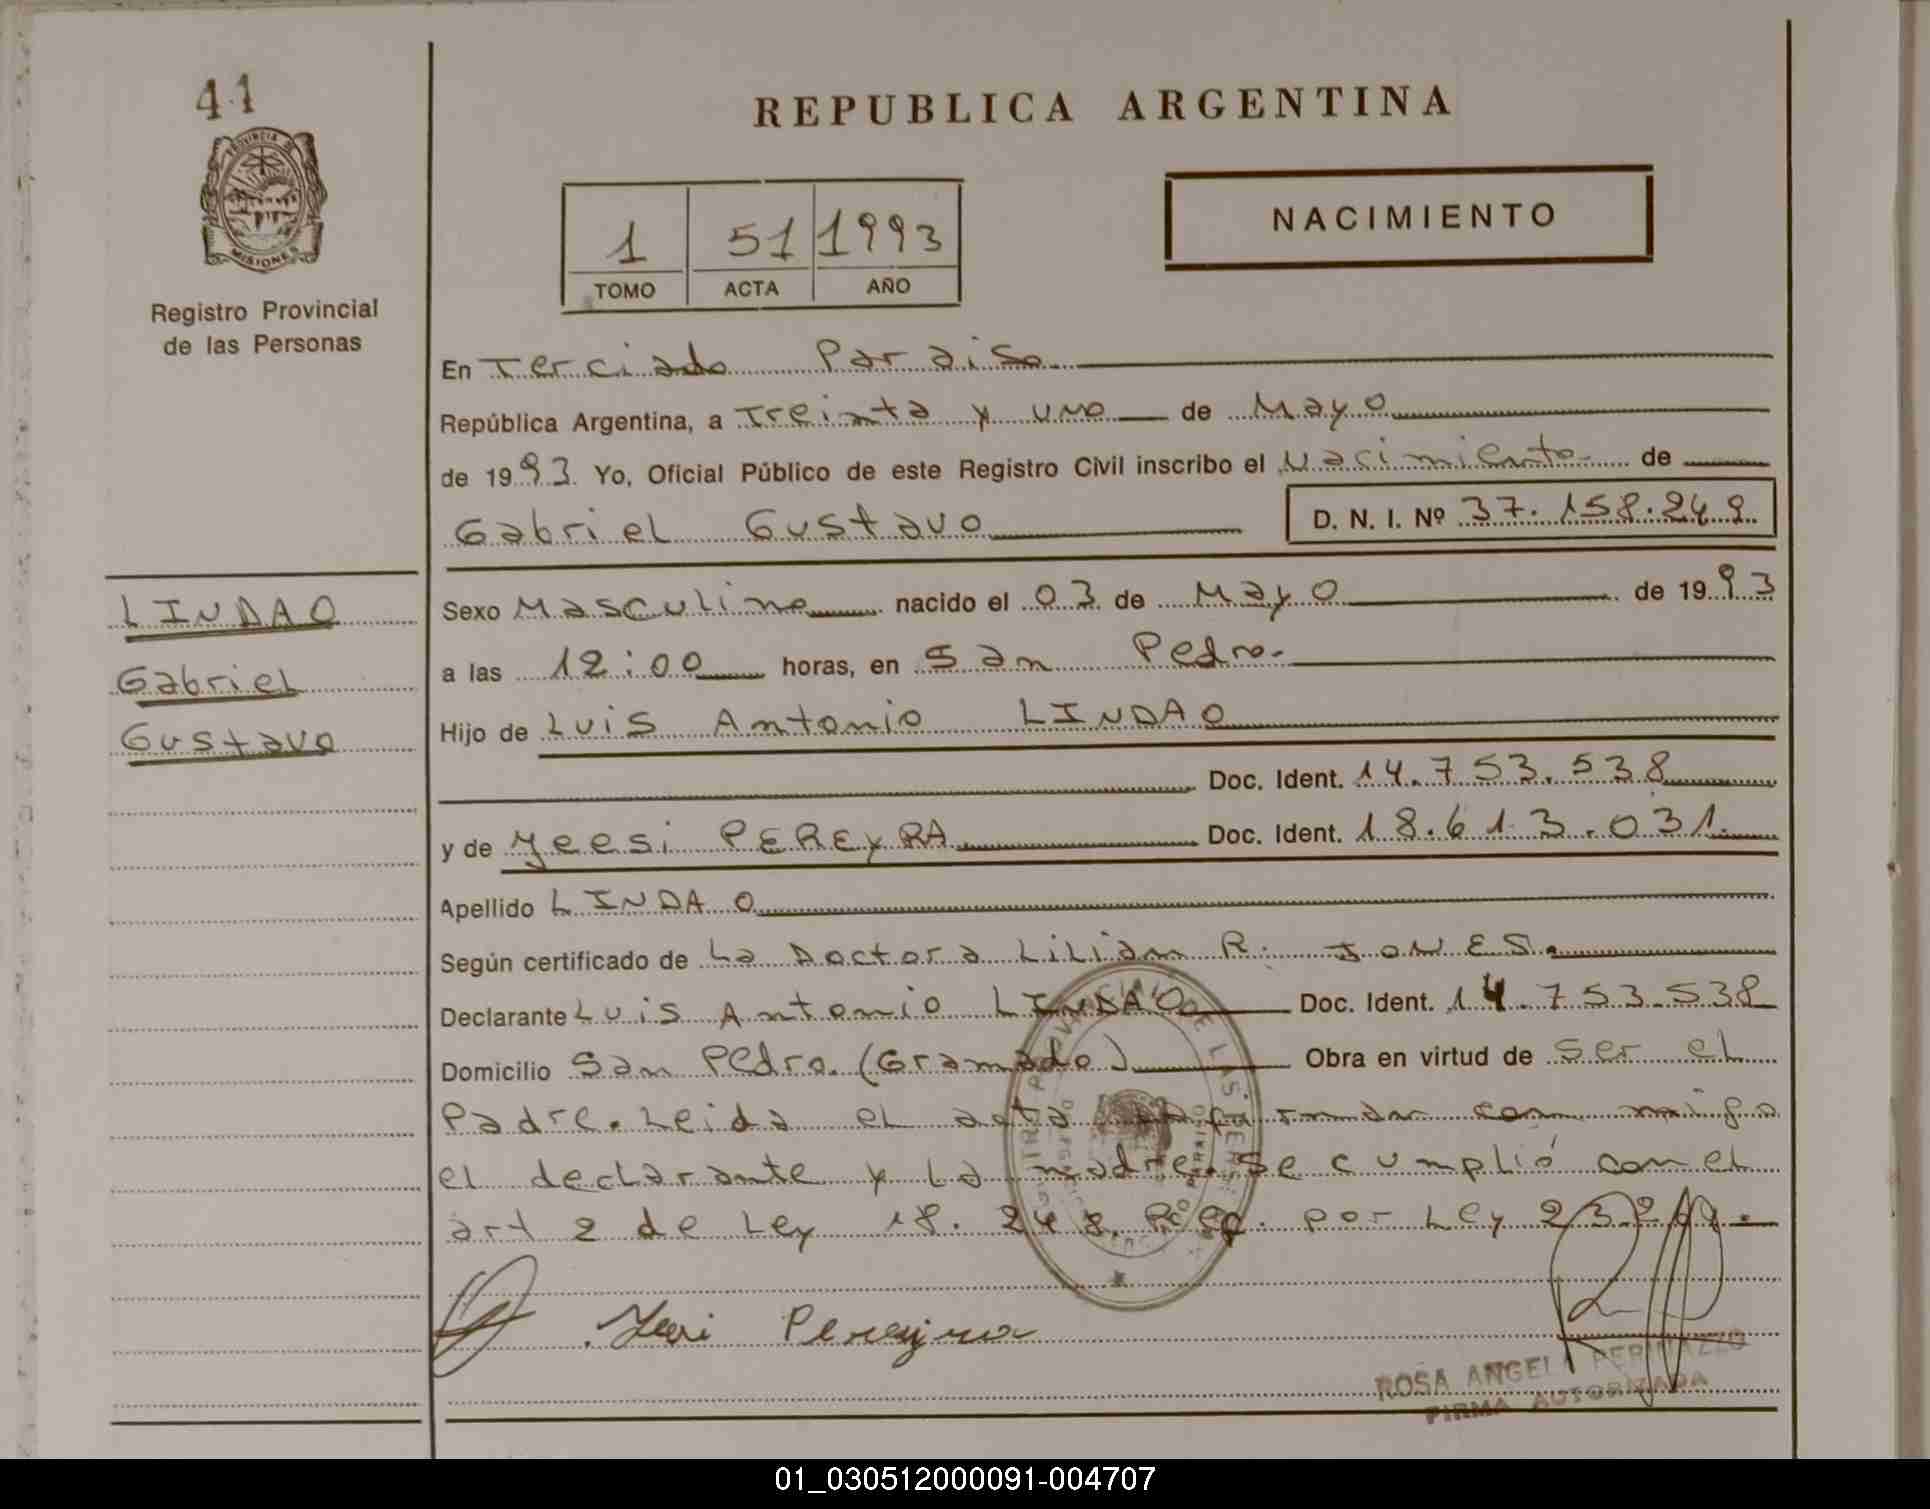 41
PROVINCIA DE
MISIONES
Registro Provincial
de las Personas
REPUBLICA ARGENTINA
1 51 1993
TOMO ACTA AÑO
NACIMIENTO
En Terciado Paraiso
República Argentina, a Treinta y uno de Mayo
de 1993. Yo, Oficial Público de este Registro Civil inscribo el Nacimiento de
Gabriel Gustavo D. N. I. Nº 37.158.249
LINDAO
Gabriel
Gustavo
Sexo Masculino nacido el 03 de Mayo de 1993
a las 12:00 horas, en San Pedro.
Hijo de Luis Antonio LINDAO
Doc. Ident. 14.753.538
y de Yeesi PEREYRA Doc. Ident. 18.613.031.
Apellido LINDAO
Según certificado de La Doctora Lilian R. JONES.
Declarante Luis Antonio LINDAO Doc. Ident. 14.753.538
Domicilio San Pedro. (Gramado) Obra en virtud de ser el
Padre. Leida el acta firman con migo
el declarante y La madre. Se cumplió con el
art 2 de Ley 18.248. por Ley
Pereyra
ROSA ANGELA PERINAZZO
FIRMA AUTORIZADA
01_030512000091-004707